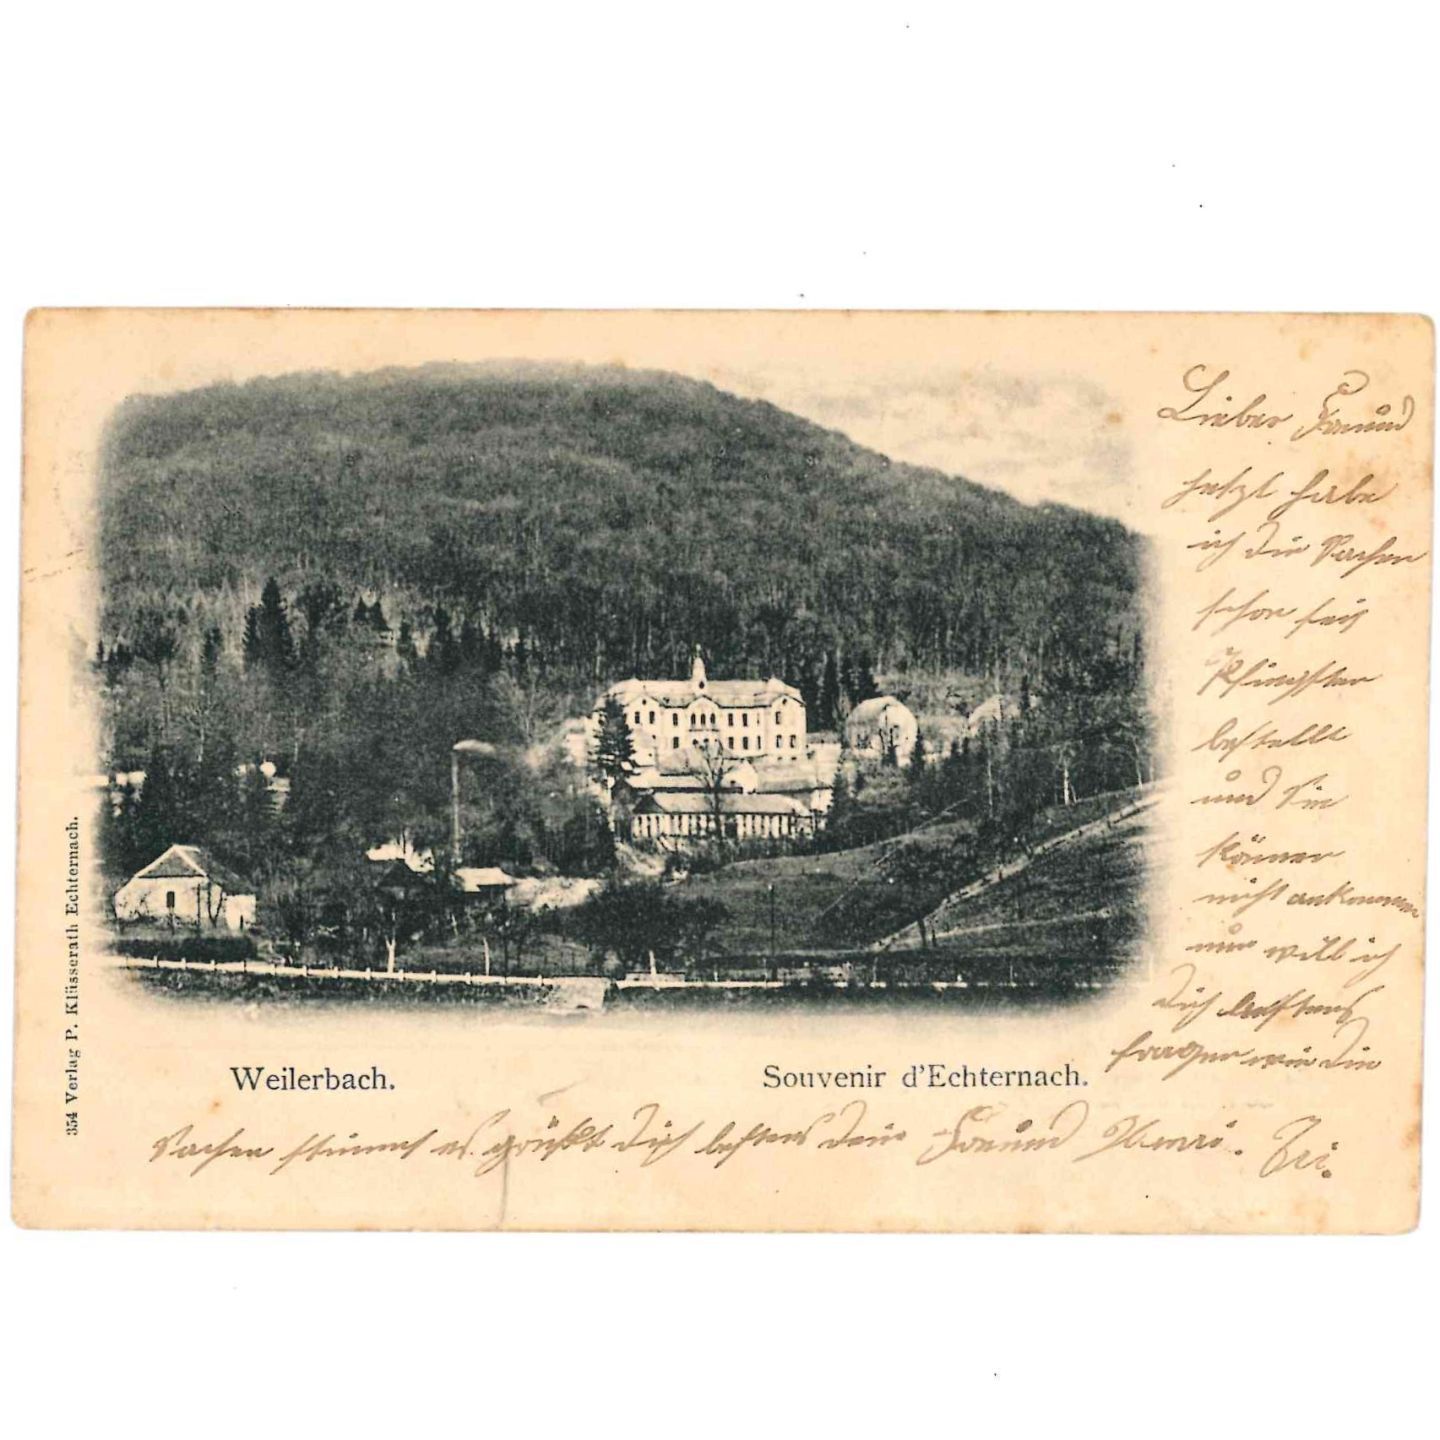 Lieber Freund
Jetzt habe
ich die Sachen
schon seit
Pfingsten
bestellt
und Sie
können
nicht ankommen
nun will ich
Dich bestens
fragen wie die
Weilerbach.
Souvenir d'Echternach.
Sachen es grüßt Dich bestens dein Freund Henri.
354 Verlag P. Klüsserath Echternach.